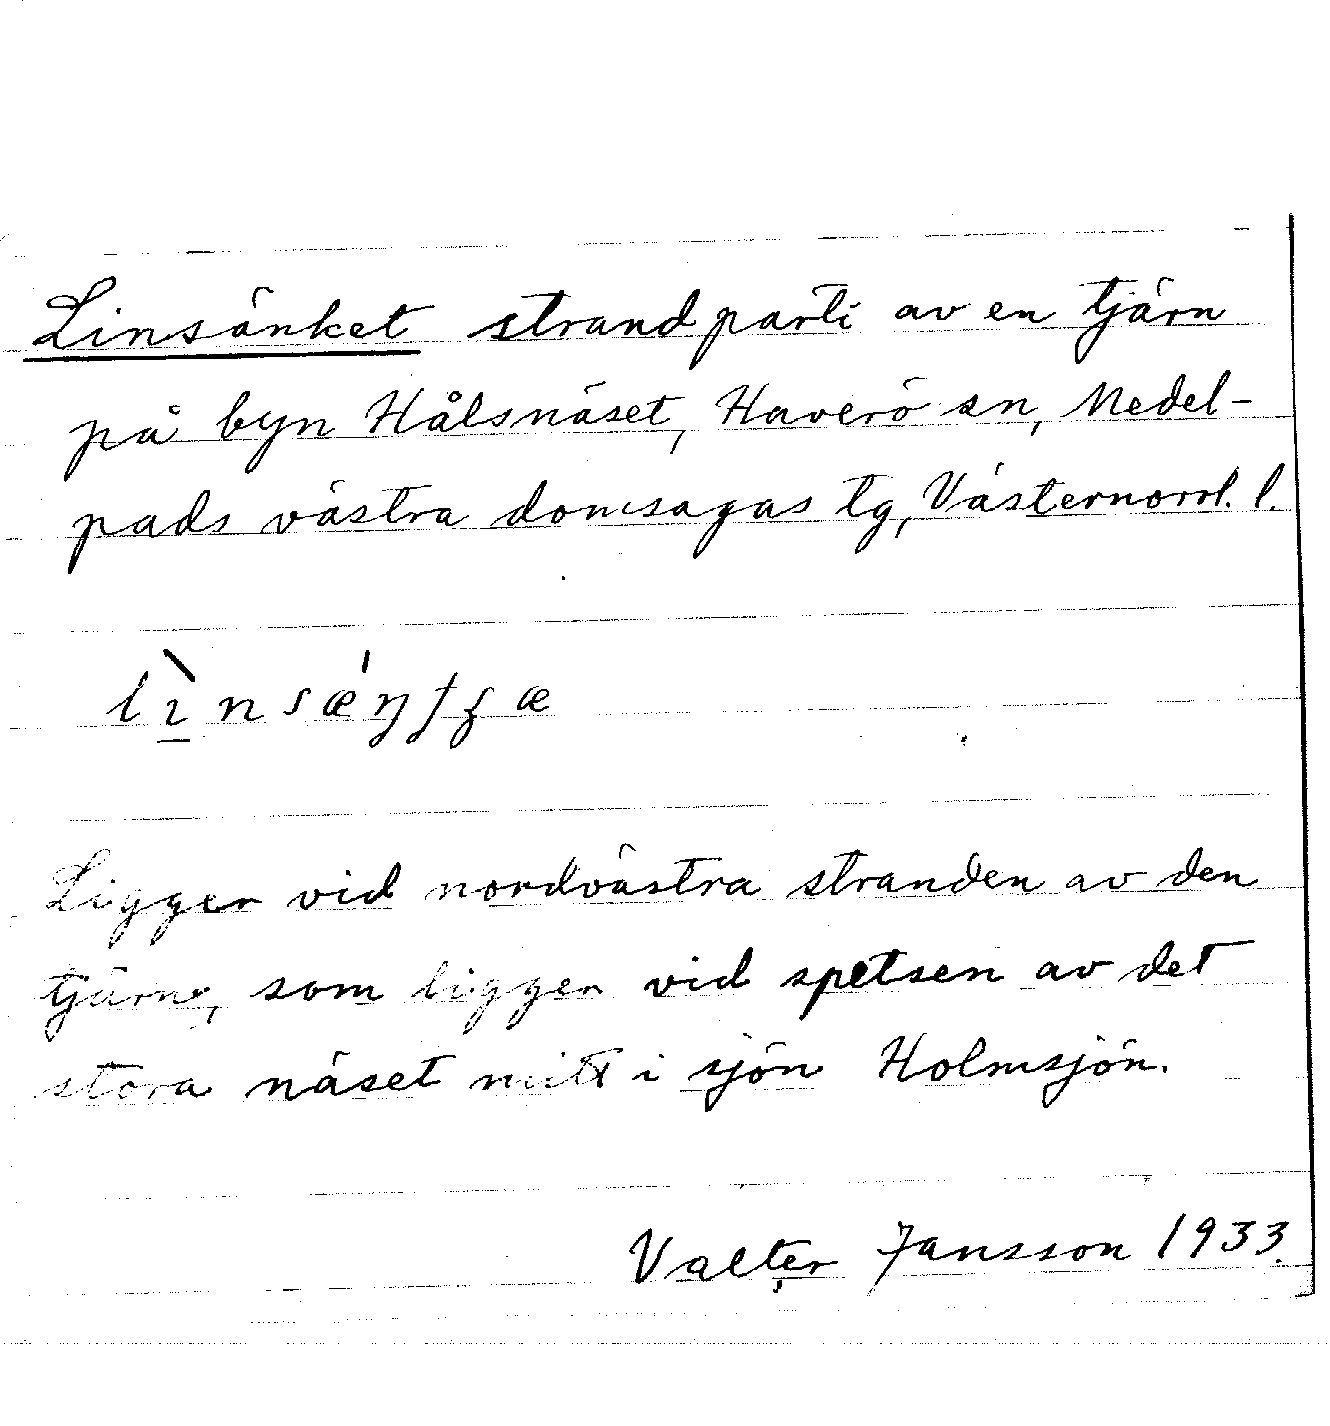 Linsänket strandparti av en tjärn
på byn Hålsnäset, Haverö sn, Medel-
pads västra domsagas tg, Västernorrl. l.
Ligger vid nordvästra stranden av den
tjärn, som ligger vid spetsen av det
stora näset mitt i sjön Holmsjön.
Valter Jansson 1933.